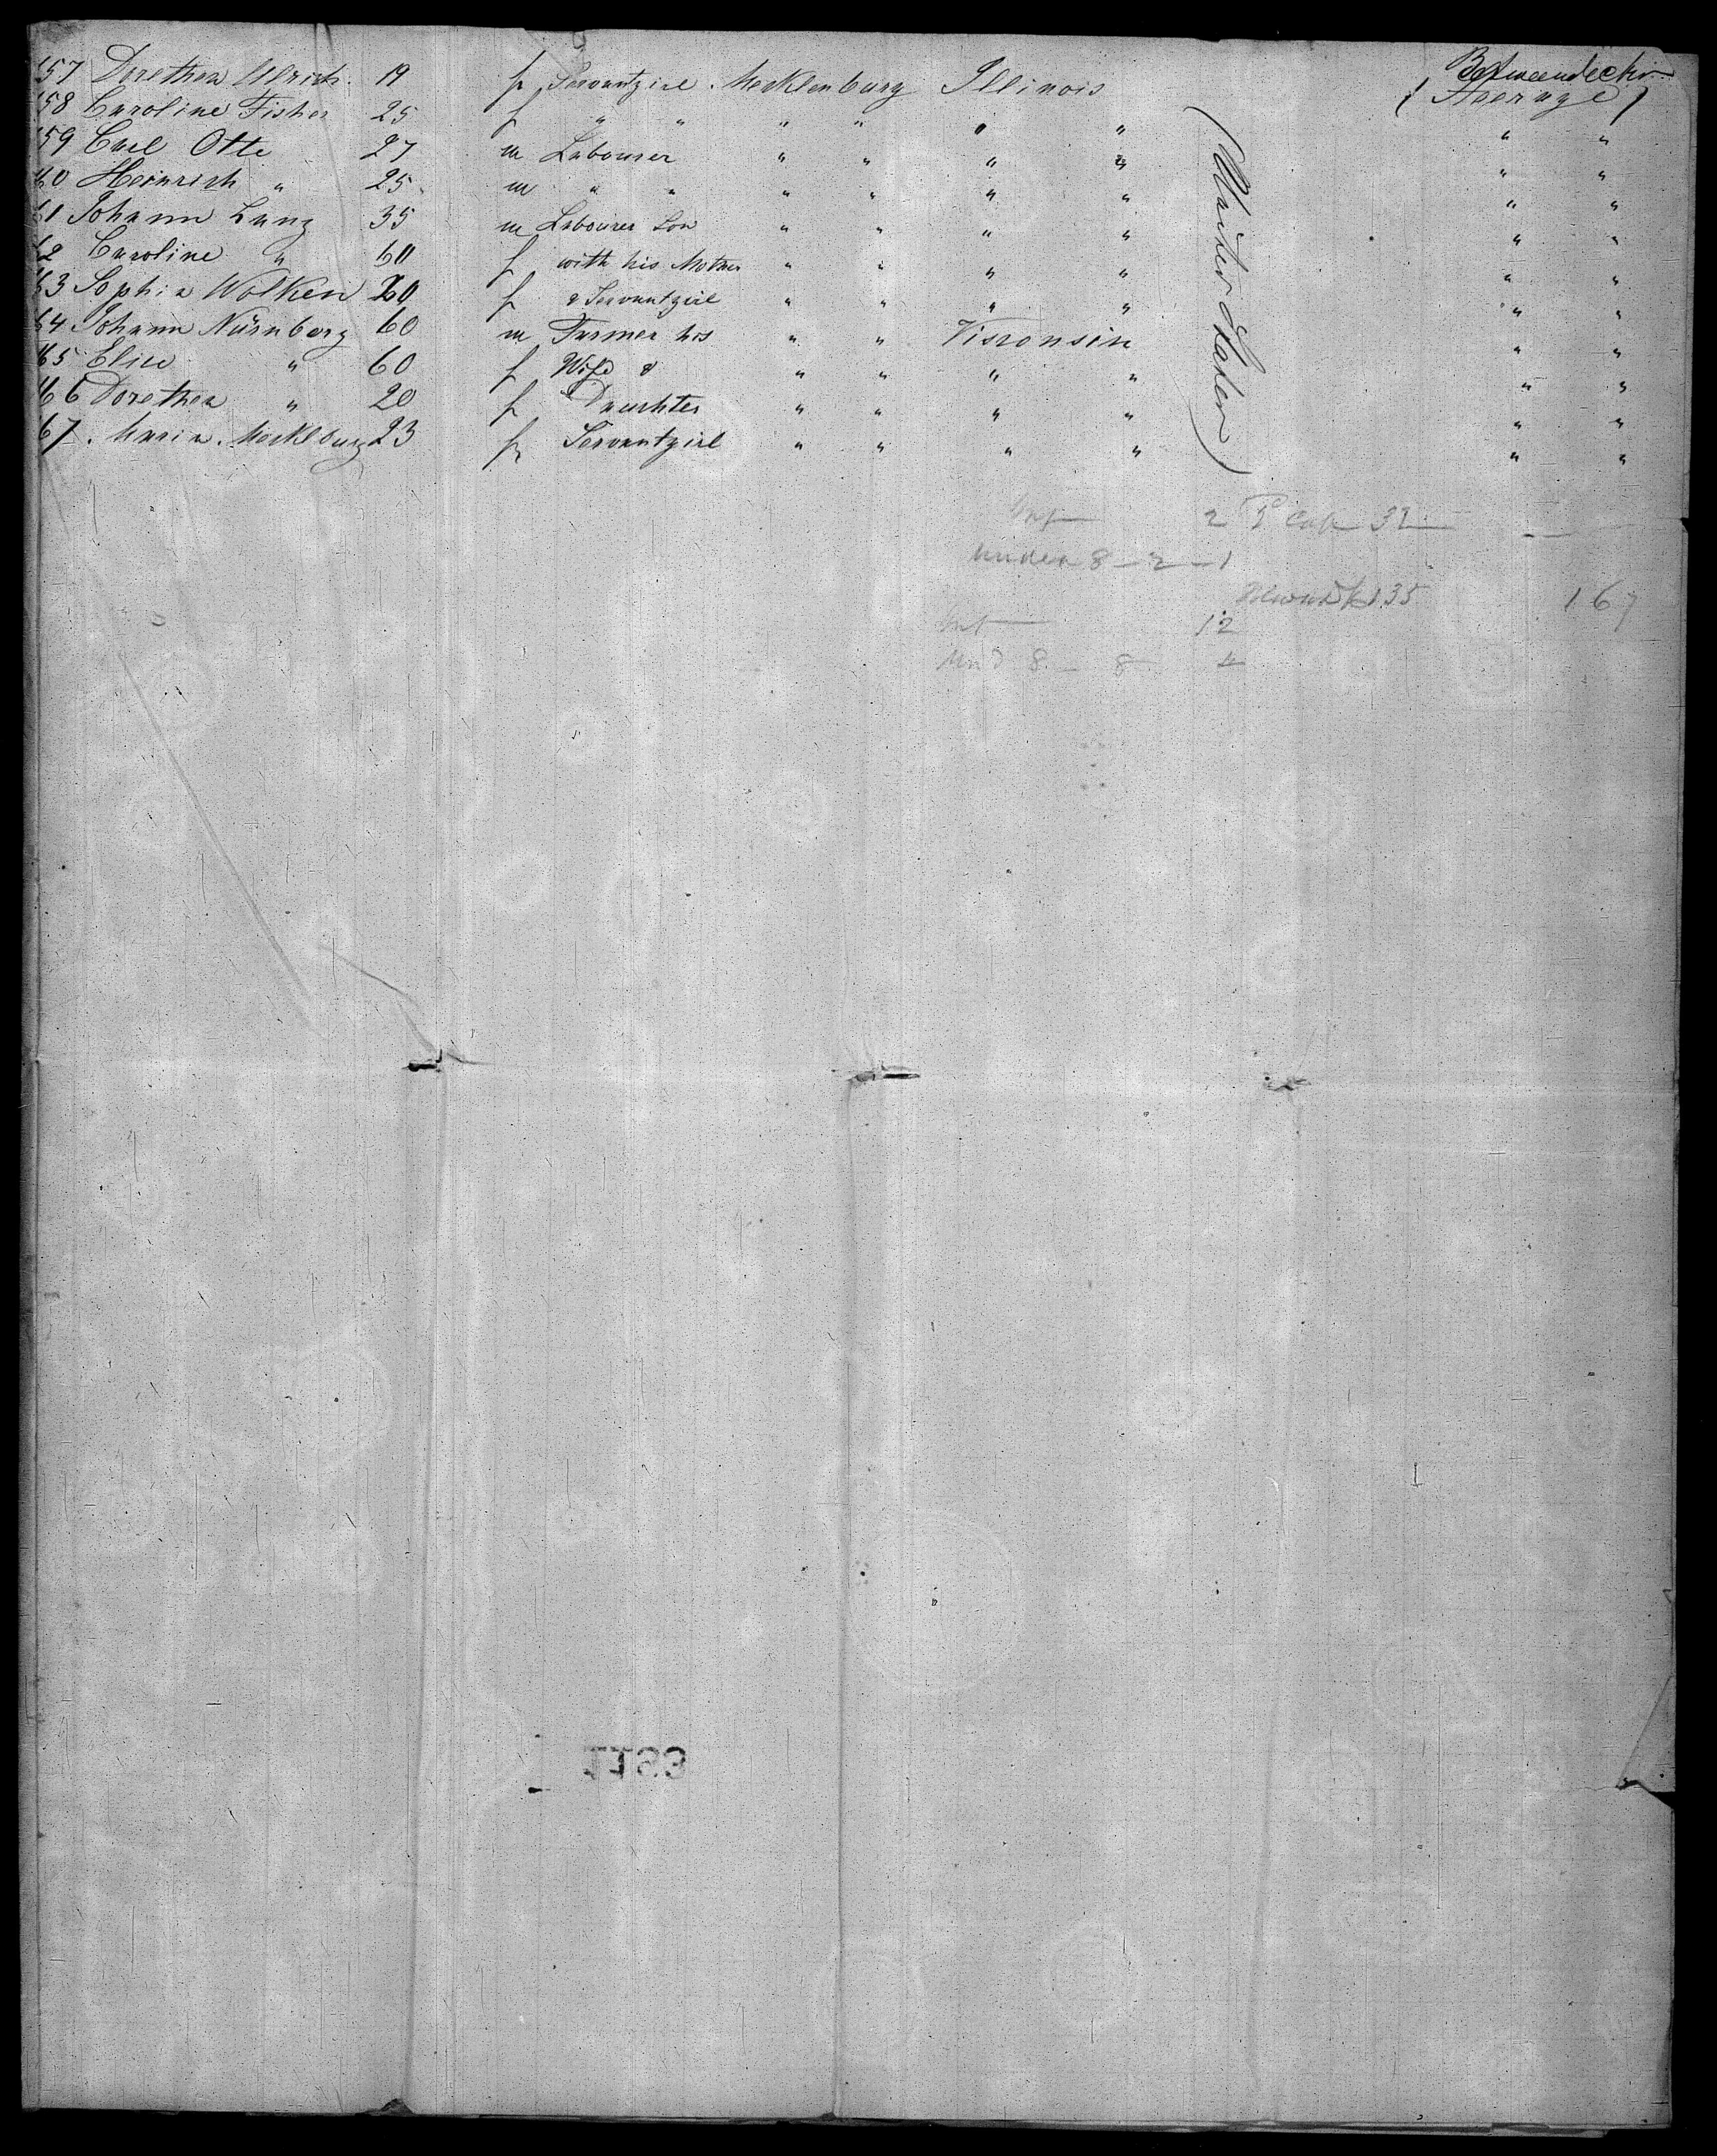 Betweendecks
157 Dorethea Ulrich. 19 f Servantgirl. Mecklenburg Illinois (Steerage)
158 Caroline Fisher 25 f " " " " " " " "
159 Carl Otte 27 m Labourer " " " " " "
160 Heinrich " 25 m " " " " " " " "
161 Johann Lang 35 m Labourer Son " " " " " "
62 Caroline " 60 f with his Mother " " " " " "
63 Sophia Wolken 20 f & Servantgirl " " " " " "
64 Johann Nürnberg 60 m Farmer his " " Visconsin " "
165 Elise " 60 f Wife & " " " " " "
166 Dorethea " 20 f Daughter " " " " " "
167. Maria. Mecklburg 23 f Servantgirl " " " " " "
(United States)
Inf 2 Cab 32
under 8 - 2 - 1
135 167
Inf 12
Und 8 - 8 4
1193